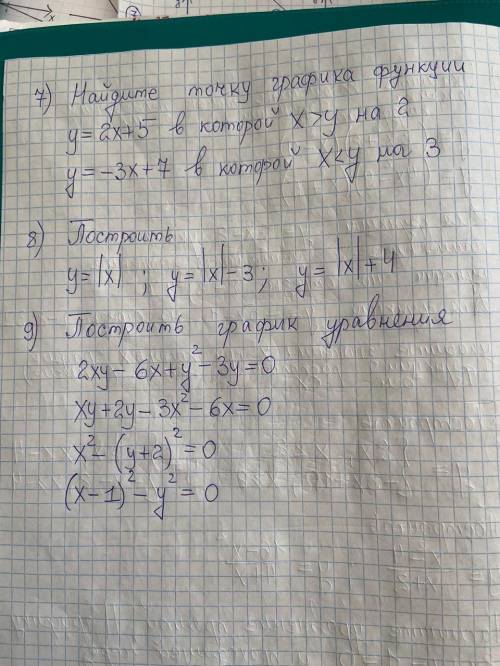 7) Найдите точку графика функции
y=2x+5 в которой x>y на 2
y=-3x+7 в которой x<y на 3
8) Построить
y=|x| ; y=|x|-3; y=|x|+4
9) Построить график уравнения
2xy-6x+y²-3y=0
xy+2y-3x²-6x=0
x²-(y+2)²=0
(x-1)²-y²=0